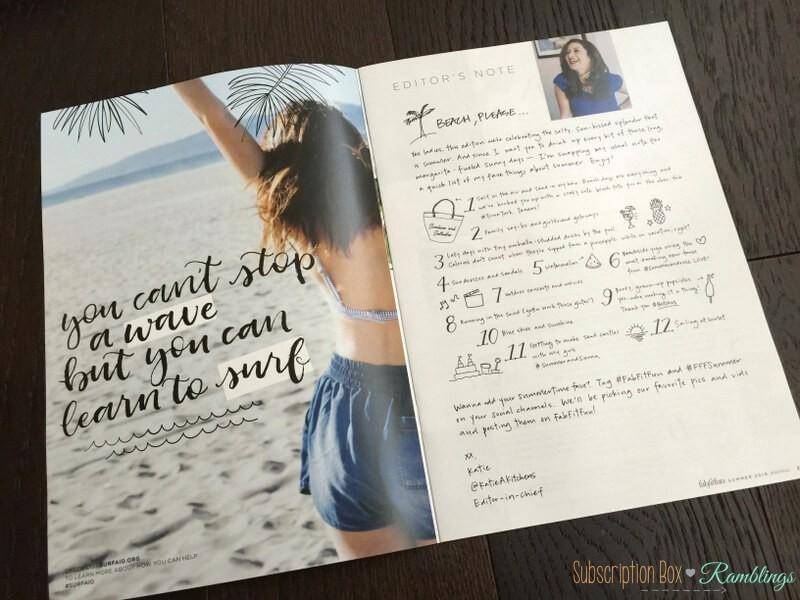 you can't stop
a wave
but you can
learn to surf
SURFAID.ORG
TO LEARN MORE ABOUT HOW YOU CAN HELP.
#SURFAID
EDITOR'S NOTE
BEACH, PLEASE...
Yes ladies, this edition we're celebrating the salty, sun-kissed splendor that
is summer. And since I want you to drink up every bit of those long,
margarita-fueled sunny days — I'm swapping my usual note for
a quick list of my fave things about summer. Enjoy!
1 Salt in the air and sand in my hair. Beach days are everything and
we've hooked you up with a crazy cute beach tote for all the
Sundrenched
2 Family cag-bo and girlfriend getaways
3 Lazy days with tiny umbrella-studded drinks by the pool.
Calories don't count when they're sipped from a pineapple while on vacation, right?
4 Sundresses and sandals
5 Watermelon
6 Beachside yoga using the
7 Outdoor concerts and movies
8 Running in the sand (gotta work those glutes!)
9 Boozy, grown-up popsicles
yes we're making it a thing!
Thank you
10 Blue skies and sunshine
11 Getting to make sand castles
with my girls
12 Smiling at sunset
Wanna add your summertime fave? Tag #FabFitFun and #FFFSummer
on your social channels. We'll be picking our favorite pics and vids
and posting them on FabFitFun!
xx,
Katie
@KatieAKitchens
Editor-in-chief
fabfitfun SUMMER 2016
Subscription Box Ramblings